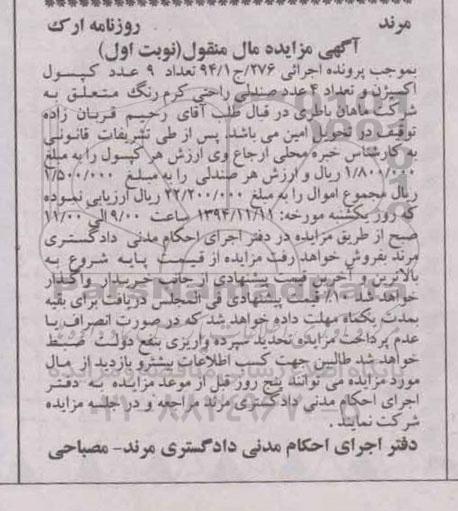 مرند
روزنامه ارک
آگهی مزایده مال منقول(نوبت اول)
بموجب پرونده اجرائی ۲۷۶/ج/۹۴/۱ تعداد ۹ عدد کپسول
اکسیژن و تعداد ۴ عدد صندلی راحتی کرم رنگ متعلق به
شرکت ماهان باطری در قبال طلب آقای رحیم قربان زاده
توقیف در تحویل امین می باشد. پس از طی تشریفات قانونی
به کارشناس خبره محلی ارجاع وی ارزش هر کپسول را به مبلغ
۱/۸۰۰/۰۰۰ ریال و ارزش هر صندلی را به مبلغ ۱/۵۰۰/۰۰۰
ریال مجموع اموال را به مبلغ ۲۲/۲۰۰/۰۰۰ ریال ارزیابی نموده
که روز یکشنبه مورخه: ۱۳۹۴/۱۱/۱۱ ساعت ۹/۰۰ الی ۱۱/۰۰
صبح از طریق مزایده در دفتر اجرای احکام مدنی دادگستری
مرند بفروش خواهد رفت مزایده از قیمت پایه شروع به
بالاترین و آخرین قیمت پیشنهادی از جانب خریدار واگذار
خواهد شد ۱۰٪ قیمت پیشنهادی فی المجلس دریافت برای بقیه
بمدت یکماه مهلت داده خواهد شد که در صورت انصراف یا
عدم پرداخت مزایده تجدید سپرده واریزی بنفع دولت ضبط
خواهد شد طالبین جهت کسب اطلاعات بیشترو بازدید از مال
مورد مزایده می توانند پنج روز قبل از موعد مزایده به دفتر
اجرای احکام مدنی دادگستری مرند مراجعه و در جلسه مزایده
شرکت نمایند.
دفتر اجرای احکام مدنی دادگستری مرند- مصباحی